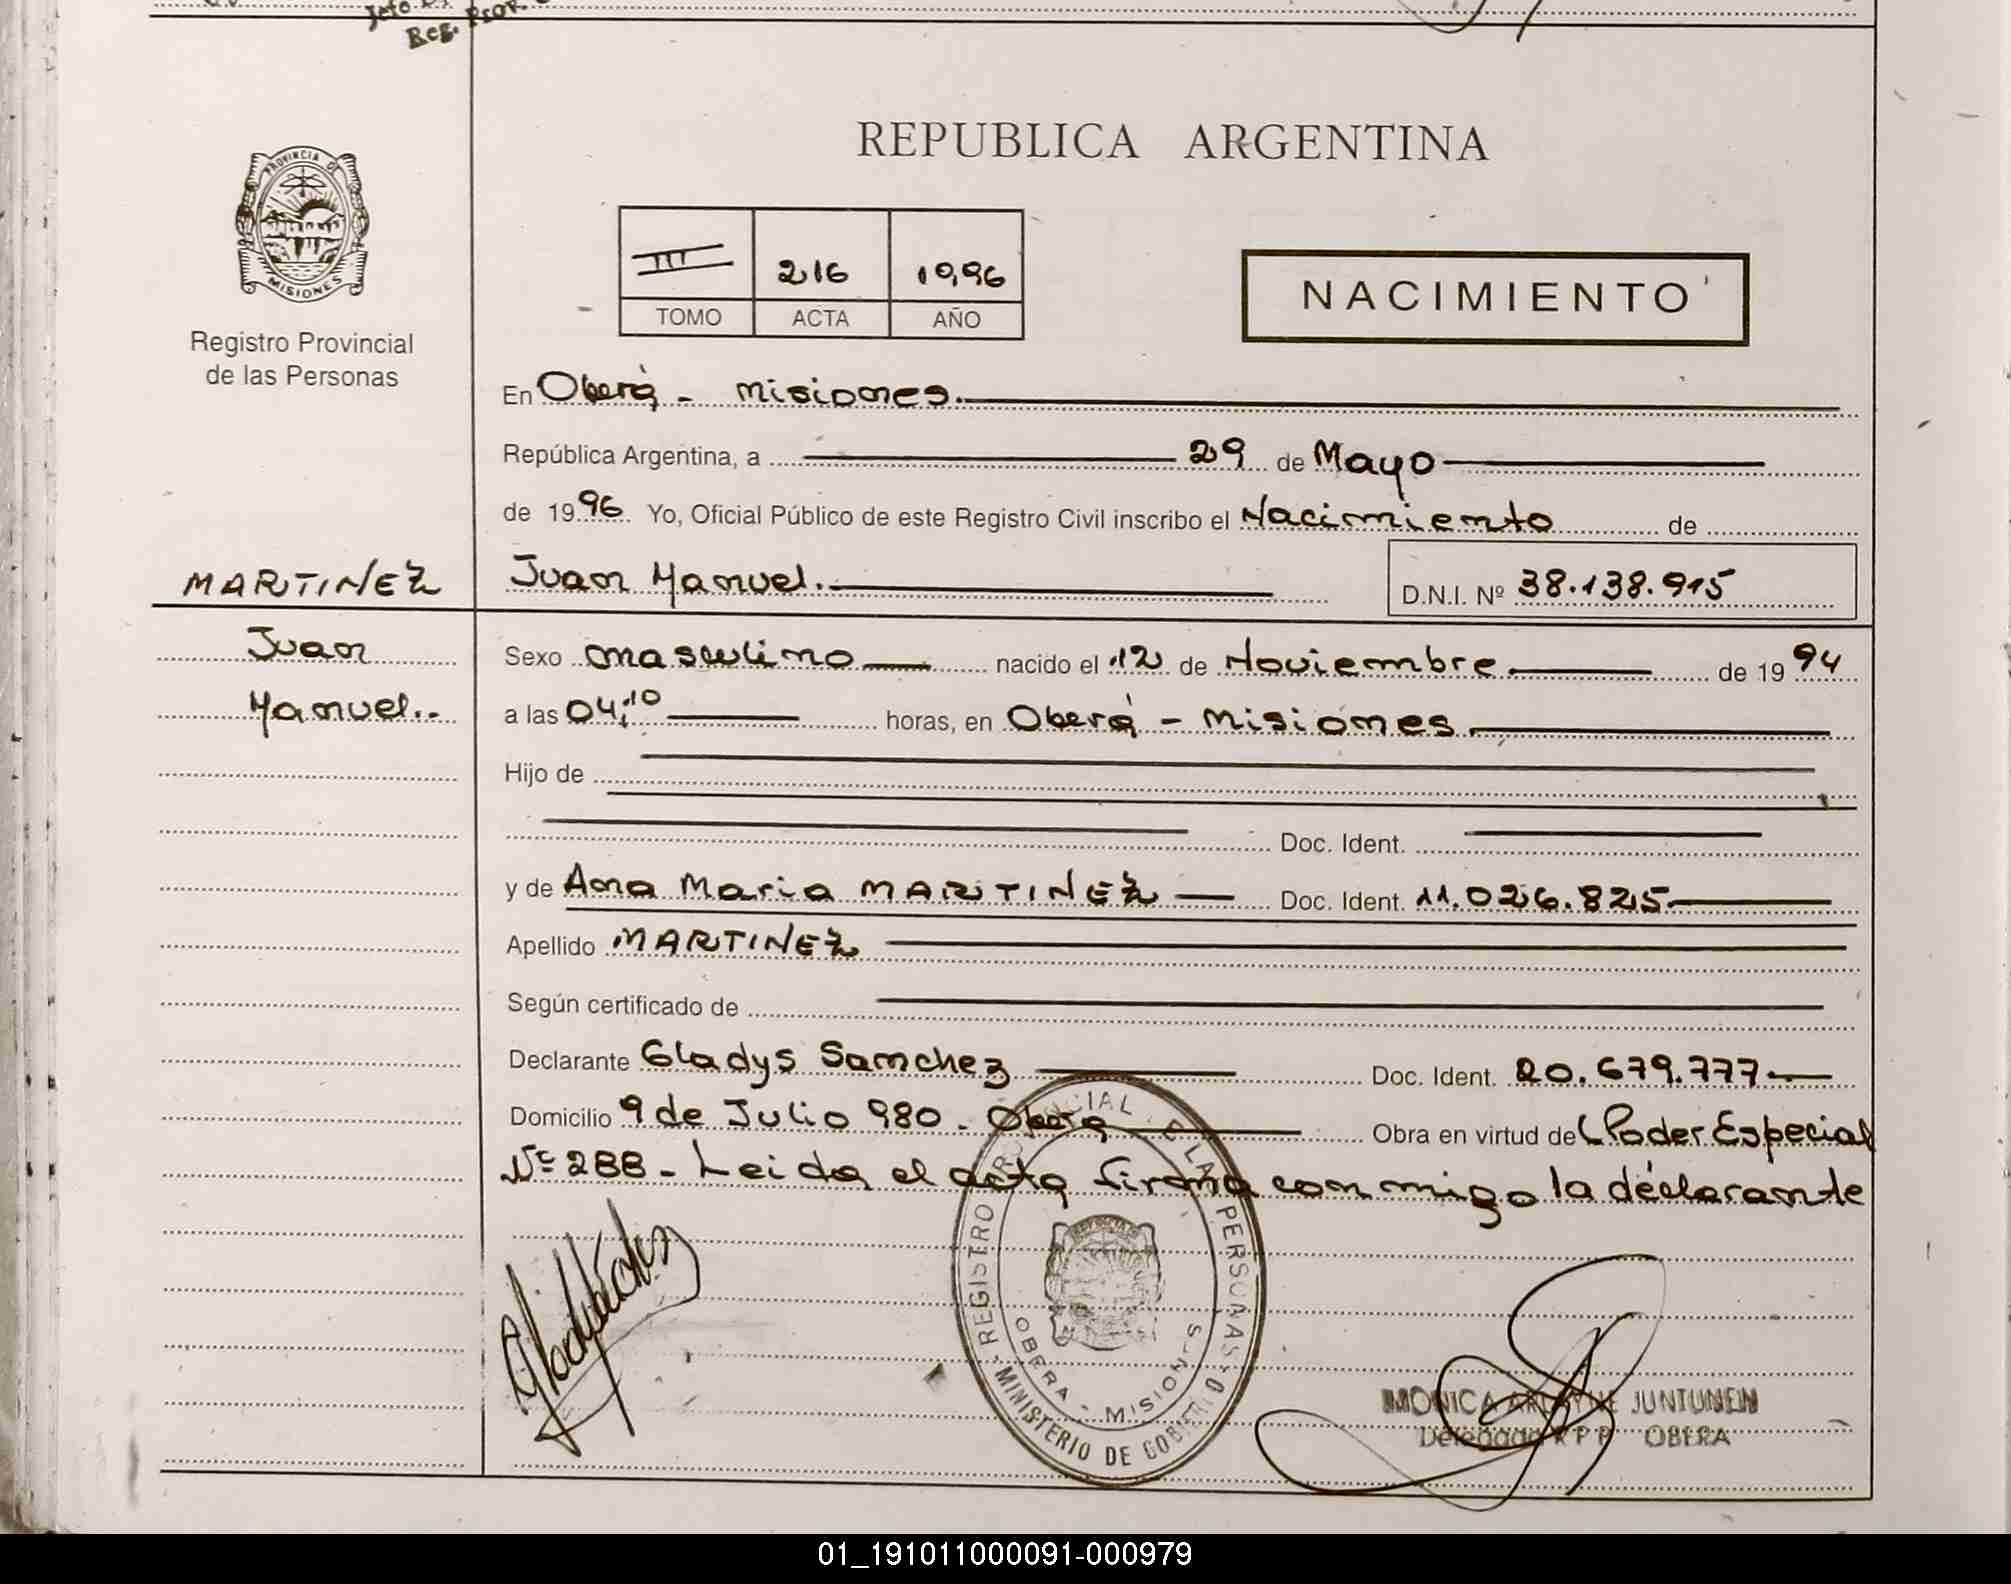 Reg. Prov.
REPUBLICA ARGENTINA
PROVINCIA DE
MISIONES
Registro Provincial
de las Personas
III 216 1996
TOMO ACTA AÑO
NACIMIENTO
En Oberá - Misiones.
República Argentina, a 29 de Mayo
de 1996 Yo, Oficial Público de este Registro Civil inscribo el Nacimiento de
MARTINEZ
Juan Manuel.
D.N.I. Nº 38.138.915
Juan
Manuel.-
Sexo masculino nacido el 12 de Noviembre de 1994
a las 04:10 horas, en Oberá - Misiones
Hijo de
Doc. Ident.
y de Ana Maria MARTINEZ Doc. Ident. 11.026.825
Apellido MARTINEZ
Según certificado de
Declarante Gladys Sanchez Doc. Ident. 20.679.777
Domicilio 9 de Julio 980 - Oberá Obra en virtud del Poder Especial
Nº 288 - Leida el acta firma conmigo la declarante
REGISTRO PROVINCIAL DE LAS PERSONAS
OBERA - MISIONES
MINISTERIO DE GOBIERNO
MONICA JUNTUNEN
Delegada R P P OBERA
01_191011000091-000979